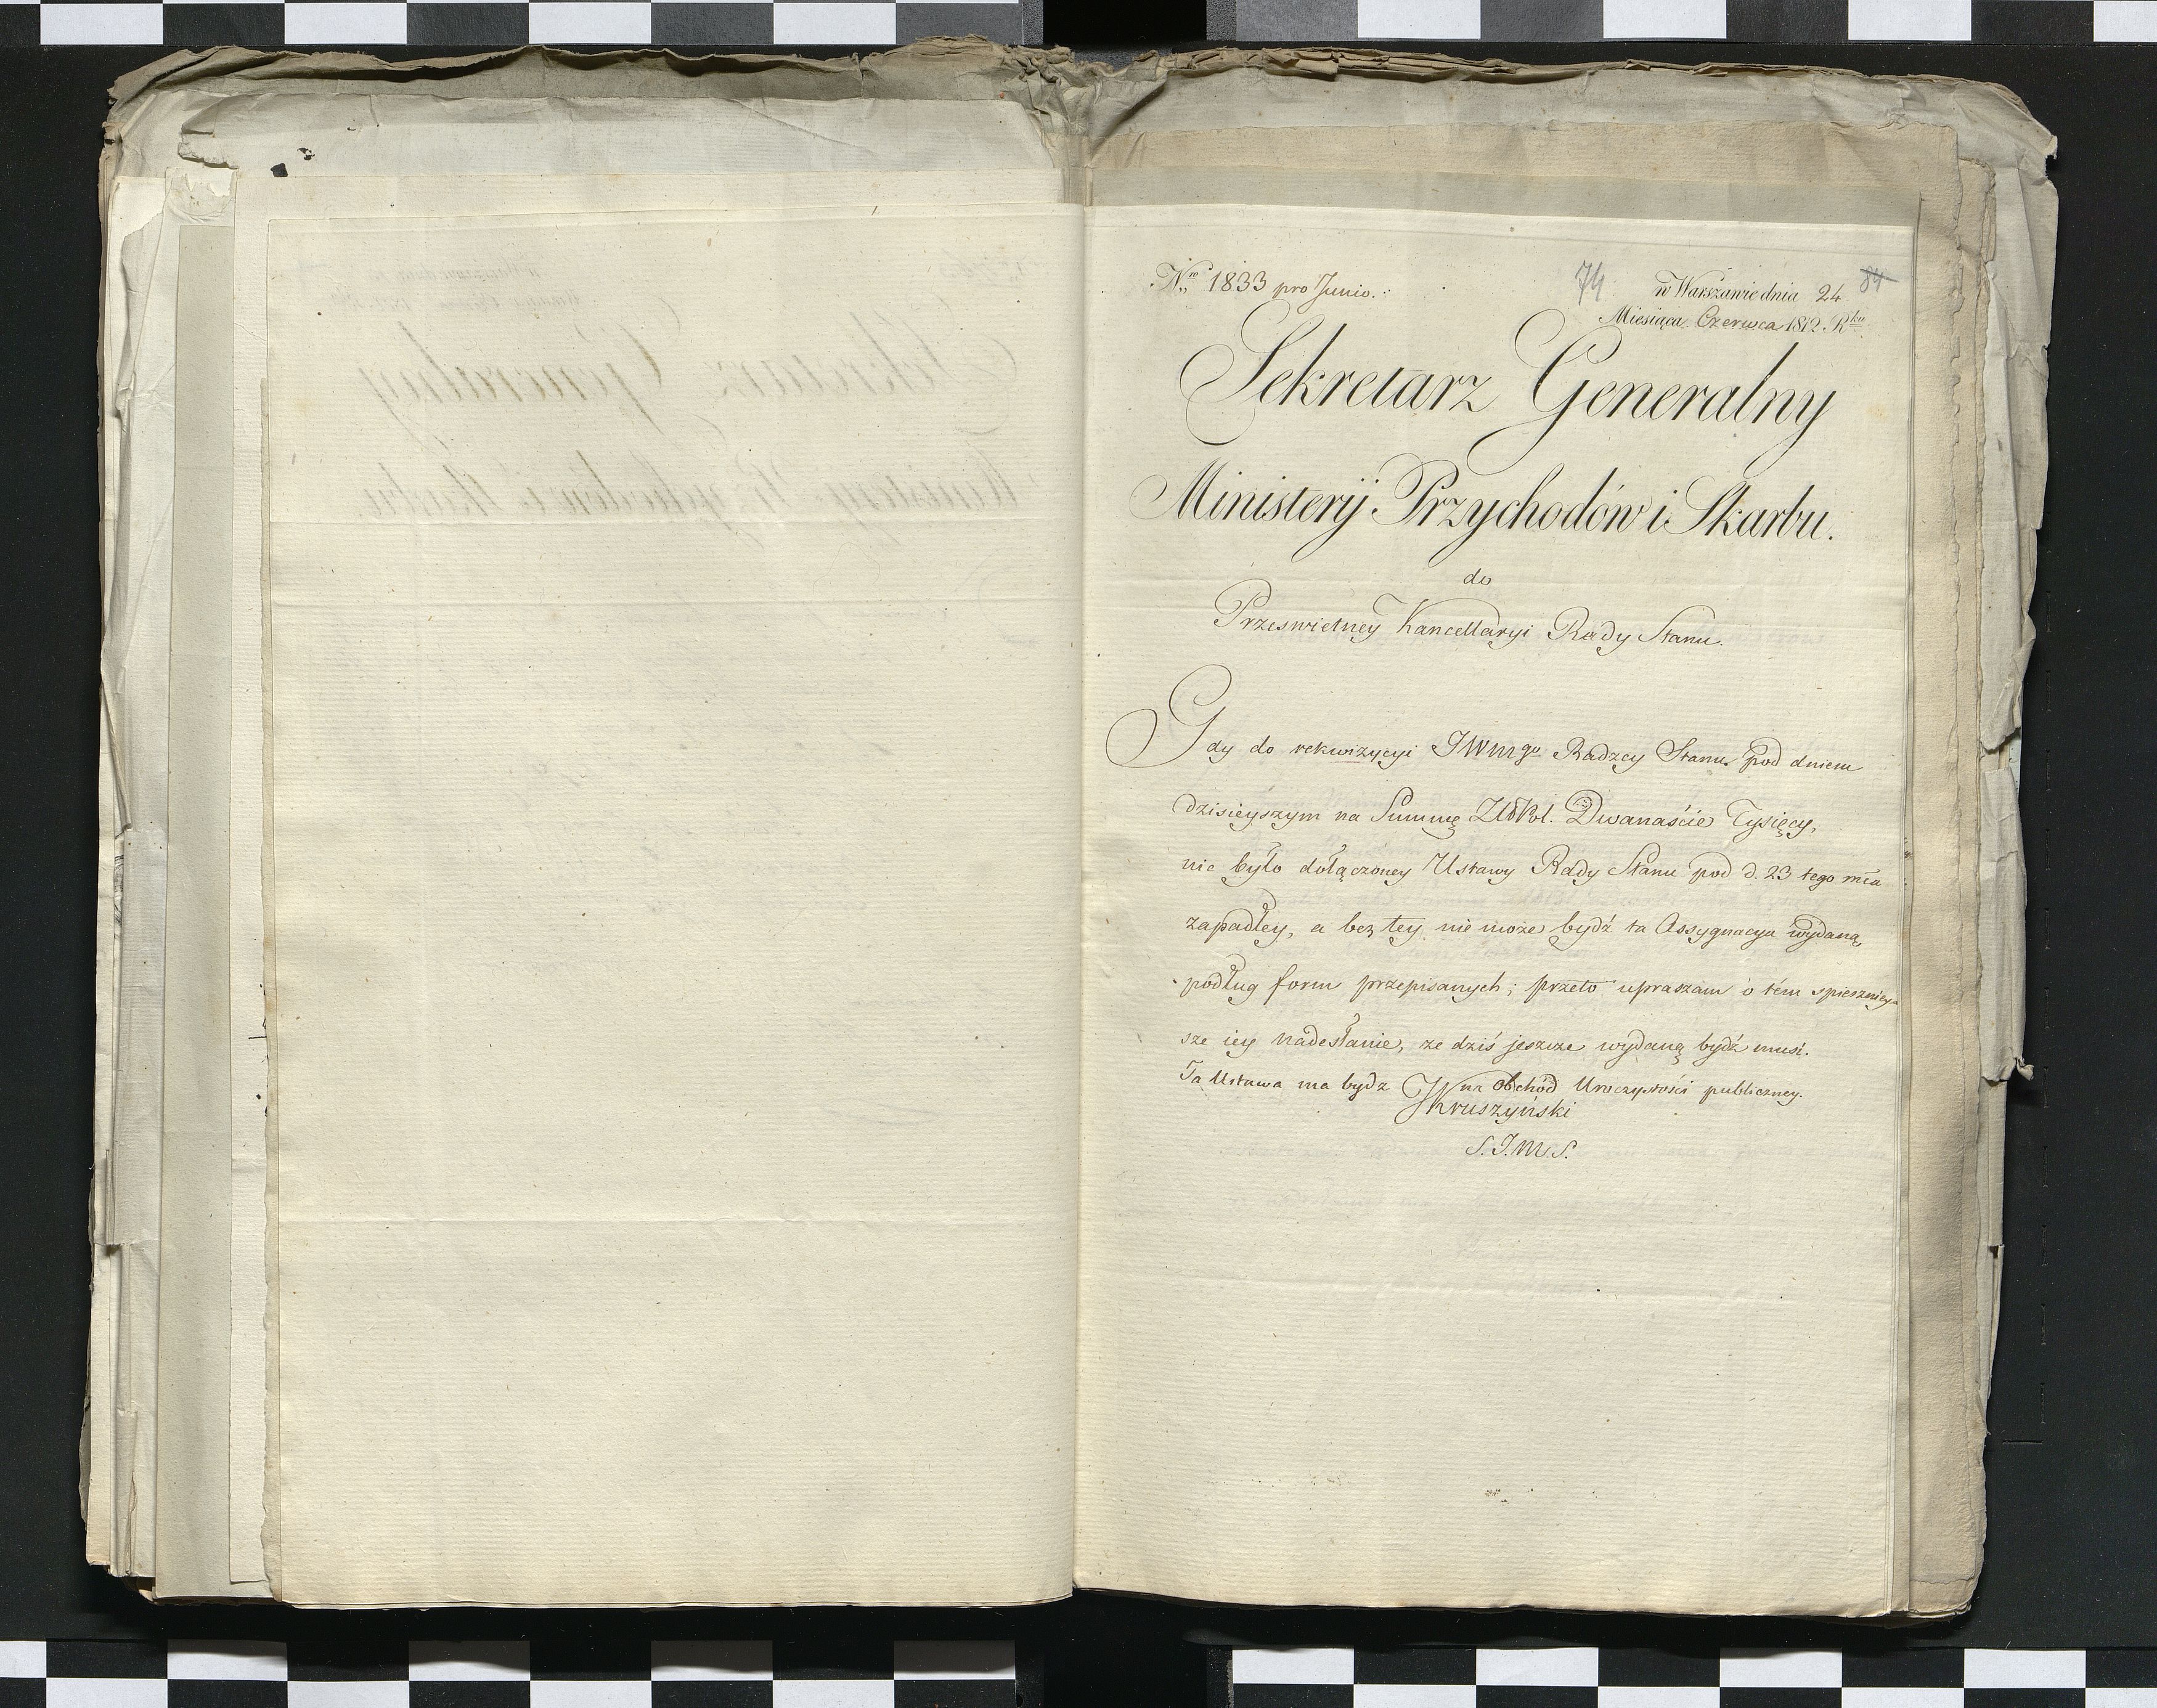 Nro 1833 pro Junio.
74
w Warszawie dnia 24
84
Miesiąca Czerwca 1812 Rku
Sekretarz Generalny
Ministerij Przychodów i Skarbu.
do
Prześwietney Kancellaryi Rady Stanu.
Gdy do rekwizycyi JWmgo Radzcy Stanu pod dniem
dzisieyszym na Summę Zł Pol. Dwanaście Tysięcy,
nie było dołączoney Ustawy Rady Stanu pod d. 23 tego mca
zapadłey, a bez tey nie może bydź ta Assygnacya wydaną
podług form przepisanych; przeto upraszam o tém spieszniey-
sze iey nadesłanie, ze dziś jeszcze wydaną bydź musi.
Ta Ustawa ma bydz na obchód Uroczystości publiczney.
JKruszyński
S.J.M.S.